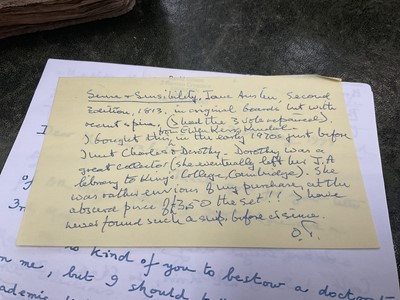 Sense & Sensibility, Jane Austen, Second
Edition, 1813. in original boards but with
recent spines, (I had the 3 vols repaired).
I bought this, from Owen Kerr, Kendal in the early 1970s just before
I met Charles & Dorothy. Dorothy was a
great collector (she eventually left her J.A
library to King's College, Cambridge). She
was rather envious of my purchase, at the
absurd price of £3.50 the set!! I have
never found such a snip before or since.
kind of you to bestow a doctor
me, but I should